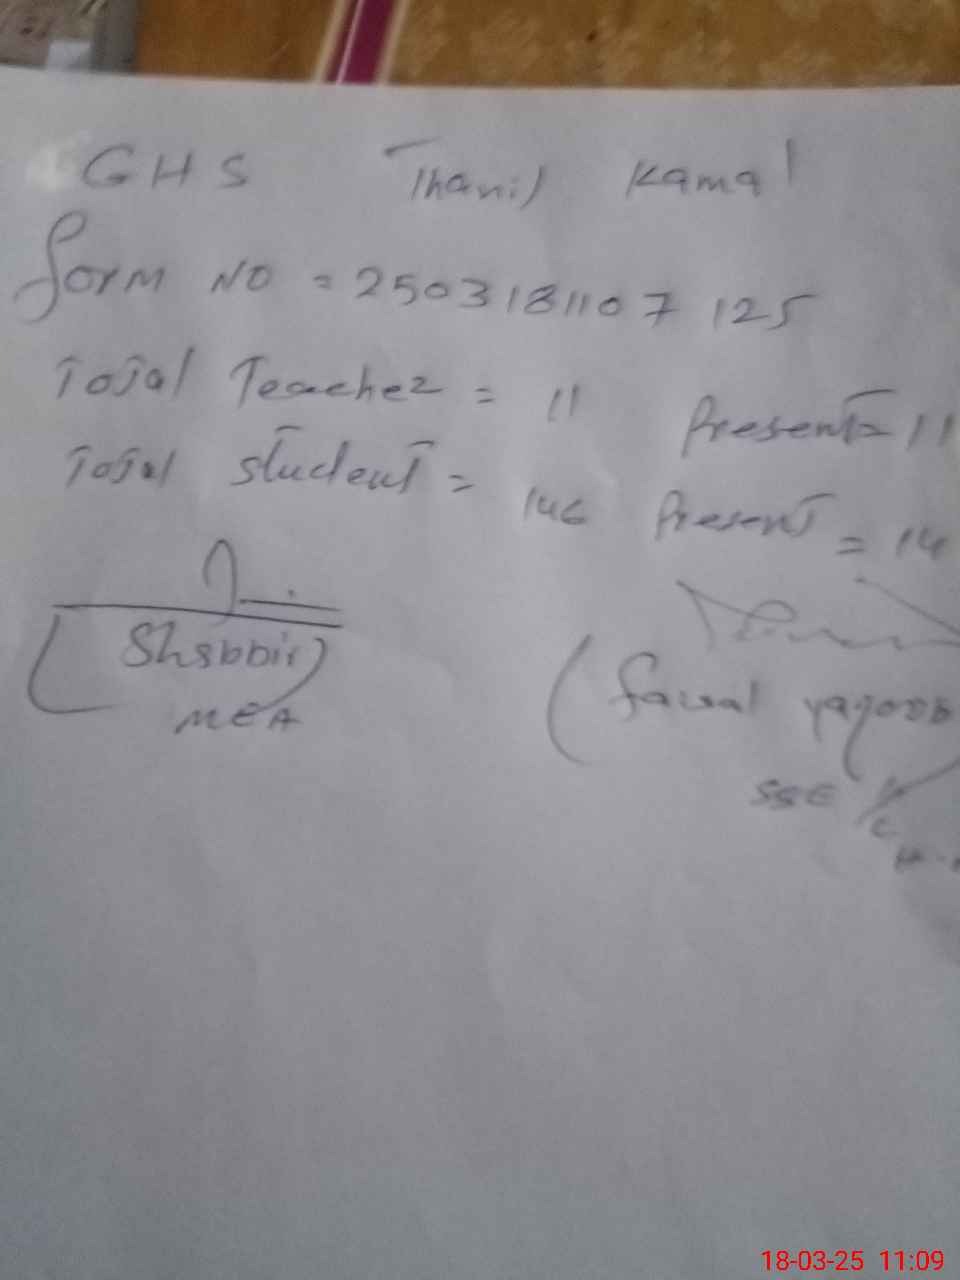 GHS Thanil Kamal
Form NO = 2503181107125
Total Teacher = 11 Present = 11
Total Student = 146 Present = 14
(Shabbir)
MEA
(Faisal yaqoob
SSE
18-03-25 11:09